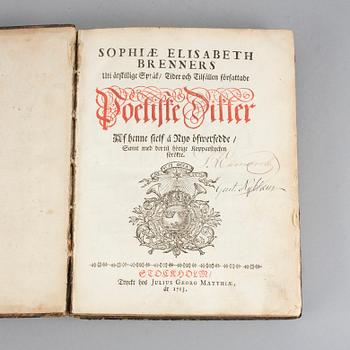 SOPHIÆ ELISABETH
BRENNERS
Uti åtskillige Språk/ Tider och Tilfällen författade
Poetiske Dikter
Af henne sielf å Nyo öfwersedde/
Samt med dertil hörige Kopparstycken
sirade.
STOCKHOLM/
Tryckt hos JULIUS GEORG MATTHIÆ,
år 1713.